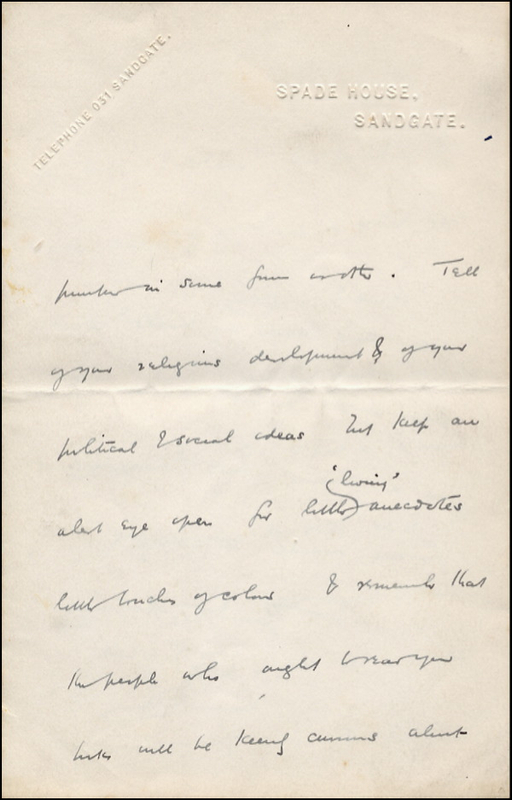 TELEPHONE 031 SANDGATE.
SPADE HOUSE,
SANDGATE.
in some form or other. Tell
of your religious development & of your
political & social ideas but keep an
"living"
alert eye open for little anecdotes
little touches of colour & remember that
the people who ought to read your
will be keenly curious about